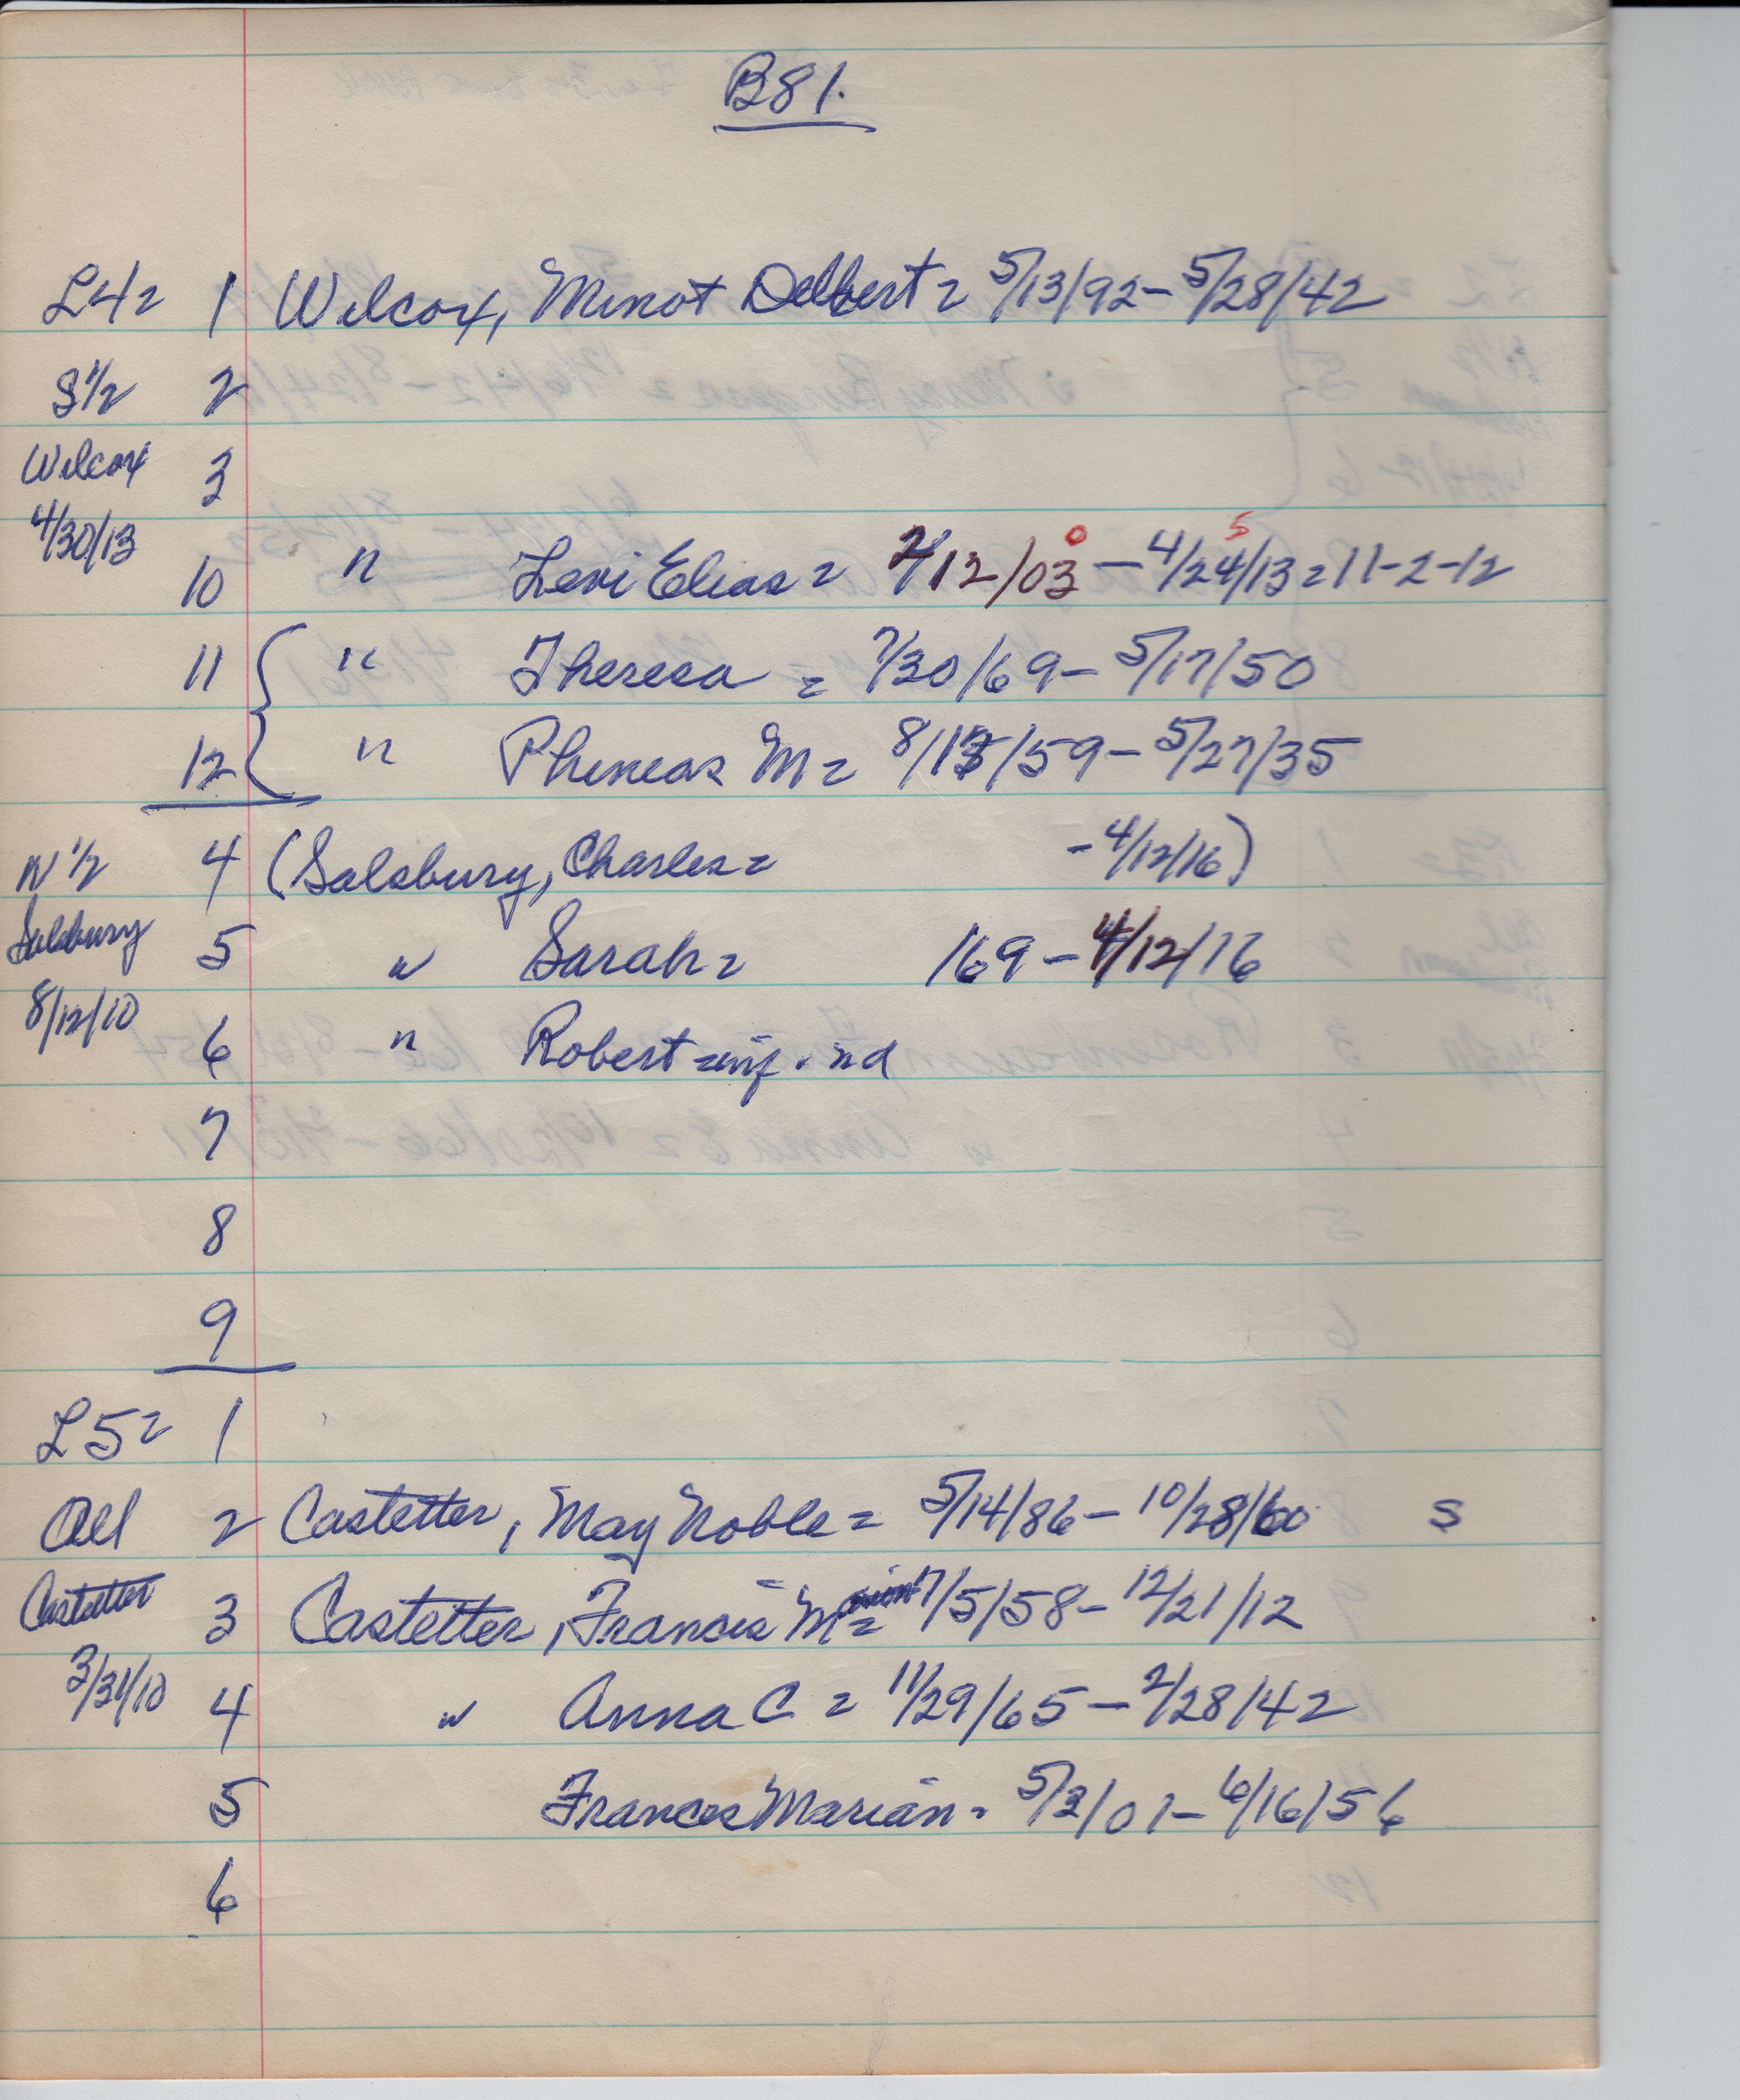 B81.
L4= 1 Wilcox, Minot Delbert = 5/13/92 - 5/28/42
S 1/2 2
Wilcox 3
4/30/13
10 " Levi Elias = 2/12/03 0 - 4/24/13 5 = 11-2-12
11 " Theresa = 7/30/69 - 5/17/50
12 " Phineas M = 8/13/59 - 5/27/35
N 1/2 4 (Salsbury, Charles = - 4/12/16)
Salsbury 5 " Sarah = 169 - 4/12/16
8/12/10 6 " Robert = inf. nd
7
8
9
L5= 1
All 2 Castetter, May Noble = 5/14/86 - 10/28/60 S
Castetter 3 Castetter, Francis Marion = 7/5/58 - 12/21/12
3/31/10 4 " Anna C = 11/29/65 - 2/28/42
5 Frances Marian - 5/3/01 - 6/16/56
6